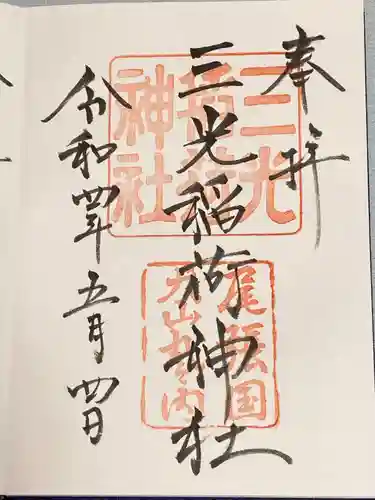 奉拝
三光稲荷神社
令和四年五月四日
三光
稲荷
神社
尾張国
犬山城之内